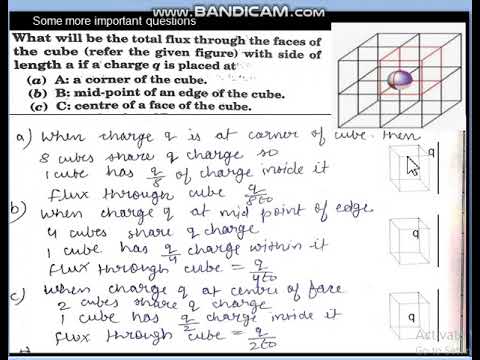 www.BANDICAM.com
Some more important questions
What will be the total flux through the faces of
the cube (refer the given figure) with side of
length a if a charge q is placed at
(a) A: a corner of the cube.
(b) B: mid-point of an edge of the cube.
(c) C: centre of a face of the cube.
a) When charge q is at corner of cube. then
8 cubes share q charge so
1 cube has q/8 of charge inside it
flux through cube q/8ε0
b) when charge q at mid point of edge
4 cubes share q charge
1 cube has q/4 charge within it
flux through cube = q/4ε0
c) when charge q at centre of face
2 cubes share q charge
1 cube has q/2 charge inside it
flux through cube = q/2ε0
q
q
q
Activate
Go to Setti